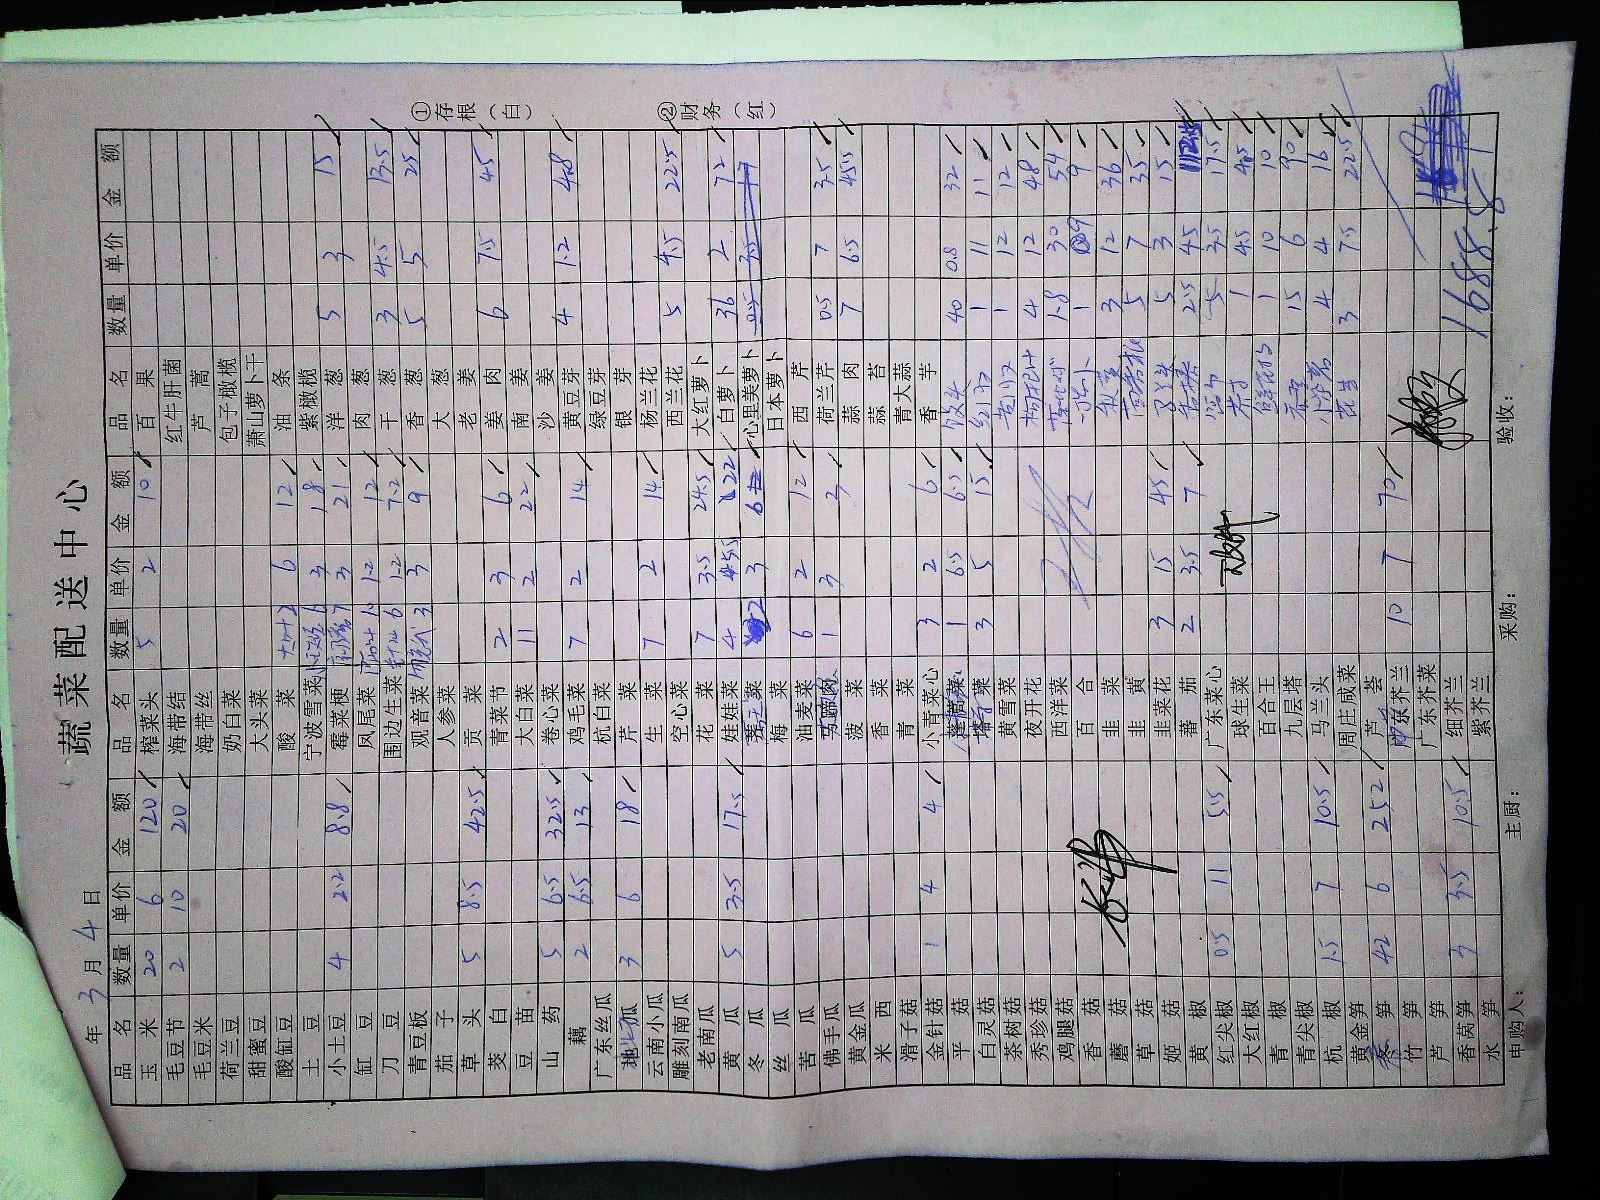 蔬菜配送中心
年 3 月 4 日
品名 数量 单价 金额 品名 数量 单价 金额 品名 数量 单价 金额
玉米 20 6 120 榨菜头 5 2 10 百果
毛豆节 2 10 20 海带结 红牛肝菌
毛豆米 海带丝 芦蒿
荷兰豆 奶白菜 包子橄榄
甜蜜豆 大头菜 萧山萝卜干
酸缸豆 酸菜 大叶 2 6 12 油条
土豆 宁波雪菜 6 3 18 紫橄榄
小土豆 4 2.2 8.8 霉菜梗 7 3 21 洋葱 5 3 15
缸豆 凤尾菜 10 1.2 12 肉葱
刀豆 围边生菜 6 1.2 7.2 干葱 3 4.5 13.5
青豆板 观音菜 3 3 9 香葱 5 5 25
茄子 人参菜 大葱
草头 5 8.5 42.5 贡菜 老姜
茭白 青菜节 2 3 6 姜肉 6 7.5 45
豆苗 大白菜 11 2 22 南姜
山药 5 6.5 32.5 卷心菜 沙姜
藕 2 6.5 13 鸡毛菜 7 2 14 黄豆芽 4 1.2 4.8
广东丝瓜 杭白菜 绿豆芽
地瓜 3 6 18 芹菜 银芽
云南小瓜 生菜 7 2 14 杨兰花
雕刻南瓜 空心菜 西兰花 5 4.5 22.5
老南瓜 花菜 7 3.5 24.5 大红萝卜
黄瓜 5 3.5 17.5 娃娃菜 4 5.5 22 白萝卜 36 2 72
冬瓜 2 3 6 心里美萝卜
丝瓜 梅菜 日本萝卜
苦瓜 油麦菜 6 2 12 西芹
佛手瓜 马蹄肉 1 3 3 荷兰芹 0.5 7 3.5
黄金瓜 菠菜 蒜肉 7 6.5 45.5
米西 香菜 蒜苔
滑子菇 青菜 青大蒜
金针菇 1 4 4 小青菜心 3 2 6 香芋
平菇 蓬蒿菜 1 6.5 6.5 40 0.8 32
白灵菇 塔菜 3 5 15 1 11 11
茶树菇 黄雪菜 1 12 12
秀珍菇 夜开花 4 12 48
鸡腿菇 西洋菜 1.8 30 54
香菇 百合 1 9 9
蘑菇 韭菜 3 12 36
草菇 韭黄 5 7 35
姬菇 韭菜花 3 15 45 5 3 15
黄椒 蕃茄 2 3.5 7 2.5 45 112.5
红尖椒 0.5 11 5.5 广东菜心 5 3.5 17.5
大红椒 球生菜 1 4.5 4.5
青椒 百合王 1 10 10
青尖椒 九层塔 15 6 90
杭椒 1.5 7 10.5 马兰头 4 4 16
黄金笋 周庄咸菜 花生 3 7.5 22.5
冬笋 42 6 252 芦荟
竹笋 芥兰 10 7 70
芦笋 广东芥菜
香莴笋 3 3.5 10.5 细芥兰 1688.8
水笋 紫芥兰
申购人： 主厨： 采购： 验收：
①存根（白）
②财务（红）